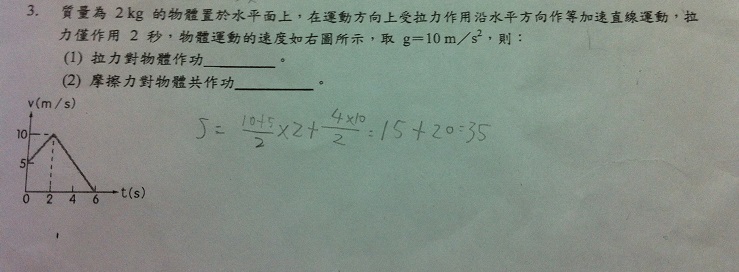 3. 質量為 2 kg 的物體置於水平面上，在運動方向上受拉力作用沿水平方向作等加速直線運動，拉
力僅作用 2 秒，物體運動的速度如右圖所示，取 g=10 m／s²，則：
(1) 拉力對物體作功________。
(2) 摩擦力對物體共作功________。
v(m/s)
10
5
0 2 4 6 t(s)
S = (10+5)/2 ×2 + (4×10)/2 = 15 + 20 = 35